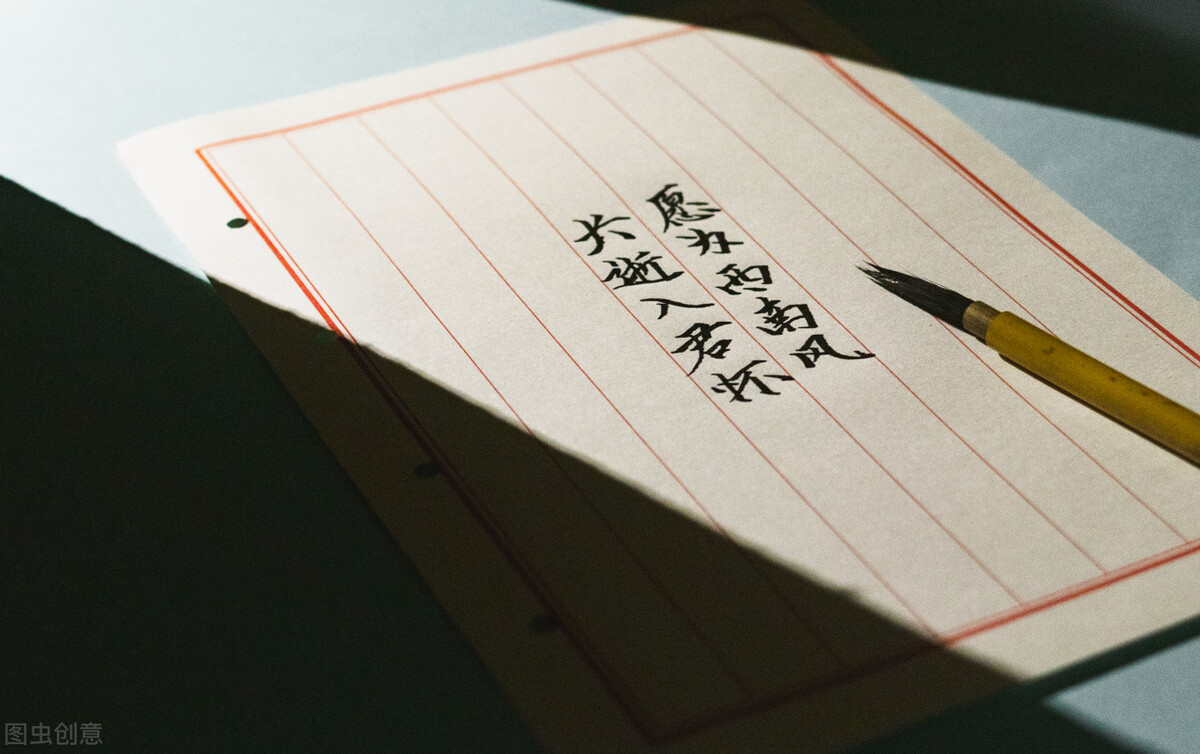 愿为西南风
长逝入君怀
图虫创意